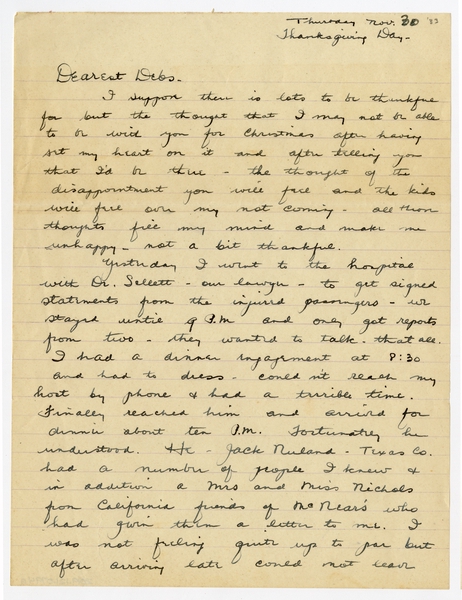 Thursday Nov. 30 '33
Thanksgiving Day-
Dearest Debs-
I suppose there is lots to be thankful
for but the thought that I may not be able
to be with you for Christmas after having
set my heart on it and after telling you
that I'd be there - the thought of the
disappointment you will feel and the kids
will feel over my not coming - all these
thoughts fill my mind and make me
unhappy - not a bit thankful.
Yesterday I went to the hospital
with Dr. Sellett - our lawyer - to get signed
statements from the injured passengers - we
stayed until 9 P.M and only got reports
from two - they wanted to talk - that all.
I had a dinner engagement at 8:30
and had to dress - could n't reach my
host by phone & had a terrible time.
Finally reached him and arrived for
dinner about ten P.M. Fortunately he
understood. He - Jack Ruland - Texas Co.
had a number of people I knew &
in addition a Mrs and Miss Nichols
from California friends of McNear's who
had given them a letter to me. I
was not feeling quite up to par but
after arriving late could not leave